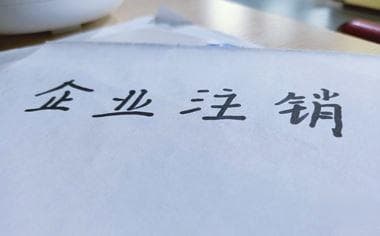 企业注销